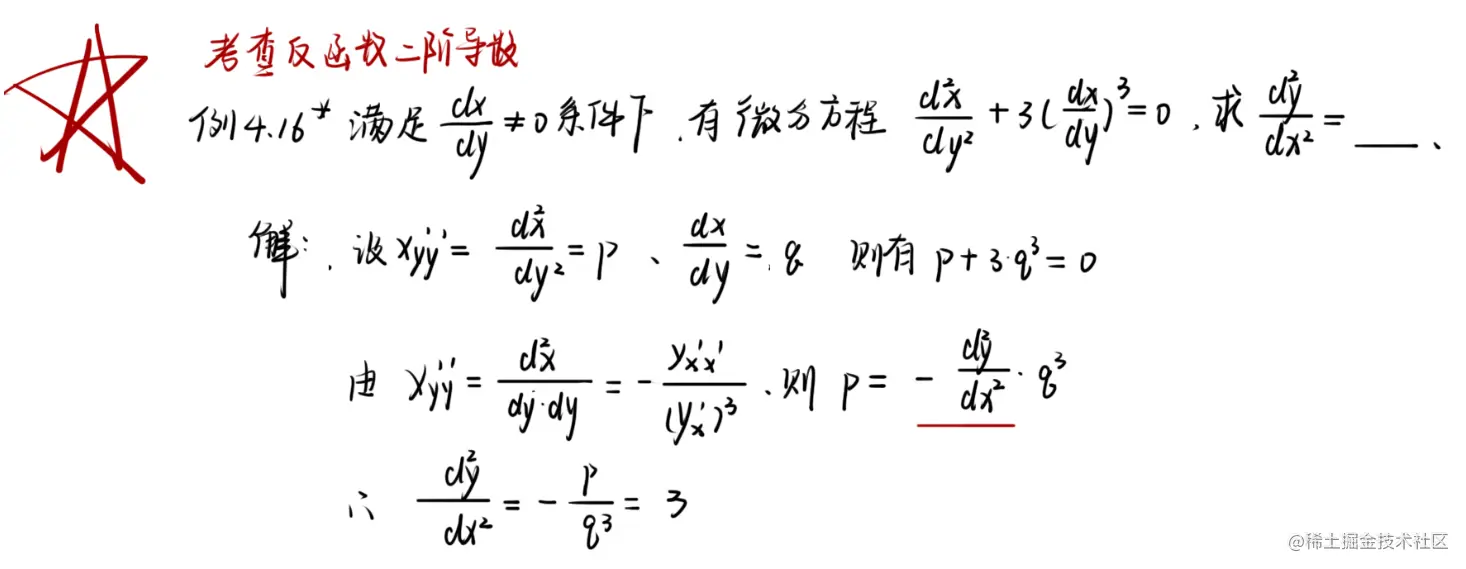 考查反函数二阶导数
例4.16* 满足 dx/dy ≠ 0 条件下，有微分方程 d²x/dy² + 3(dx/dy)³ = 0，求 d²y/dx² = ___、
解：设 x''yy = d²x/dy² = p、dx/dy = q 则有 p + 3·q³ = 0
由 x''yy = d²x/(dy·dy) = - y''xx/(y'x)³、则 p = - d²y/dx² · q³
∴ d²y/dx² = - p/q³ = 3
@稀土掘金技术社区